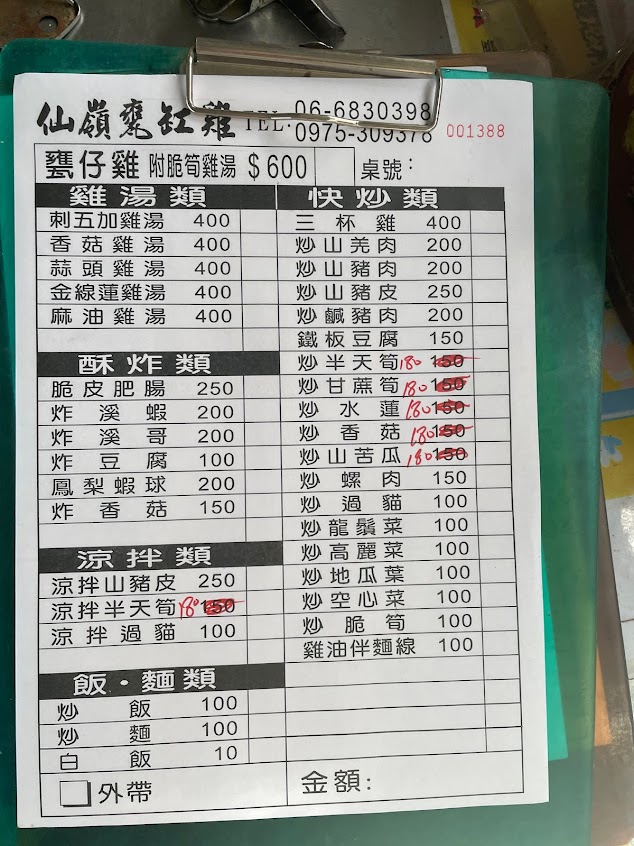 仙嶺甕缸雞 TEL: 06-6830398
0975-309378 001388
甕仔雞 附脆筍雞湯 $600 桌號:
雞湯類
刺五加雞湯 400
香菇雞湯 400
蒜頭雞湯 400
金線蓮雞湯 400
麻油雞湯 400
酥炸類
脆皮肥腸 250
炸溪蝦 200
炸溪哥 200
炸豆腐 100
鳳梨蝦球 200
炸香菇 150
涼拌類
涼拌山豬皮 250
涼拌半天筍 180 150
涼拌過貓 100
飯·麵類
炒飯 100
炒麵 100
白飯 10
外帶
快炒類
三杯雞 400
炒山羌肉 200
炒山豬肉 200
炒山豬皮 250
炒鹹豬肉 200
鐵板豆腐 150
炒半天筍 180 150
炒甘蔗筍 180 150
炒水蓮 180 150
炒香菇 180 150
炒山苦瓜 180 150
炒螺肉 150
炒過貓 100
炒龍鬚菜 100
炒高麗菜 100
炒地瓜葉 100
炒空心菜 100
炒脆筍 100
雞油伴麵線 100
金額: